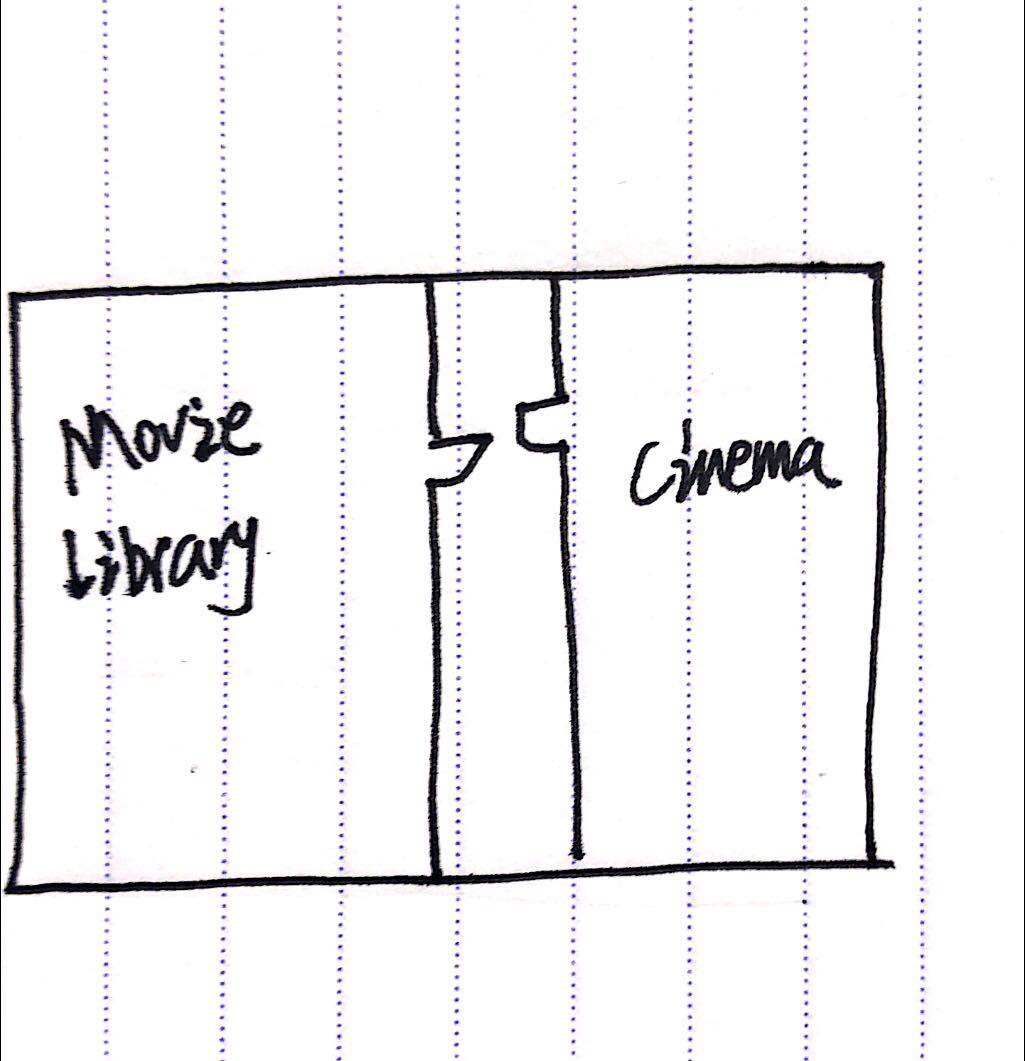 Movie
Library
Cinema